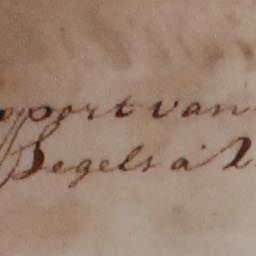 pport van
Segels à